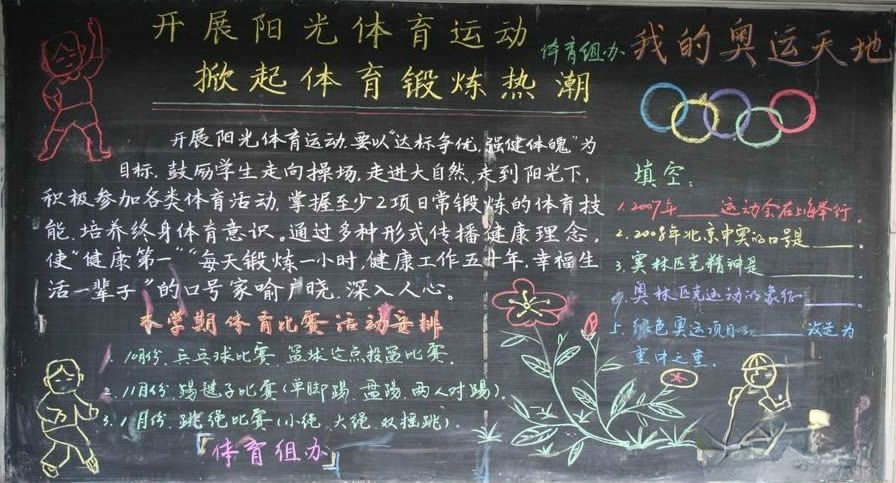 开展阳光体育运动
掀起体育锻炼热潮
体育组办
我的奥运天地
开展阳光体育运动,要以“达标争优,强健体魄”为
目标,鼓励学生走向操场,走进大自然,走到阳光下,
积极参加各类体育活动,掌握至少2项日常锻炼的体育技
能,培养终身体育意识。通过多种形式传播健康理念,
使“健康第一”“每天锻炼一小时,健康工作五十年,幸福生
活一辈子”的口号家喻户晓,深入人心。
本学期体育比赛活动安排
1. 10月份,乒乓球比赛,篮球定点投篮比赛.
2. 11月份,踢毽子比赛(单脚踢、盘踢、两人对踢).
3. 月份,跳绳比赛(小绳、大绳、双摇跳).
体育组办
填空:
1. 2007年____运动会在上海举行.
2. 2008年北京申奥的口号是____.
3. 奥林匹克精神是____.
4. 奥林匹克运动的象征____.
5. 绿色奥运项目以____改造为
重中之重.